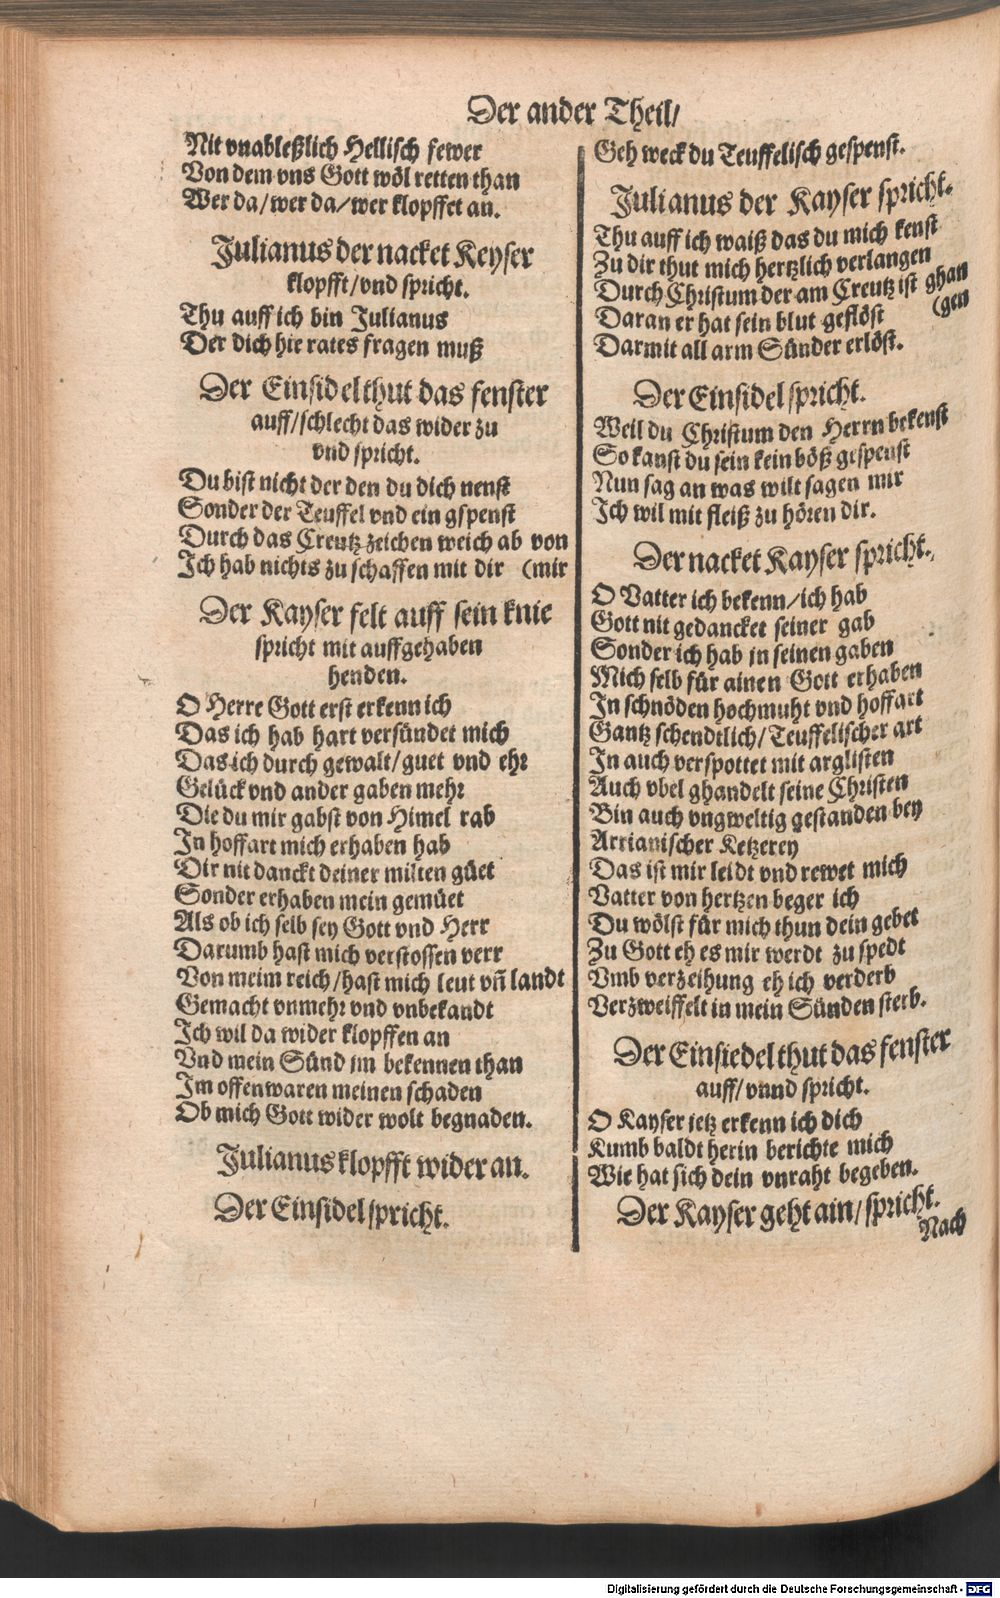 Der ander Theil/
Nit vnableßlich Hellisch fewer
Von dem vns Gott wöl retten than
Wer da/wer da/wer klopffet an.
Julianus der nacket Keyser
klopfft/vnd spricht.
Thu auff ich bin Julianus
Der dich hie rates fragen muß
Der Einsidel thut das fenster
auff/schlecht das wider zu
vnd spricht.
Du bist nicht der den du dich nenst
Sonder der Teuffel vnd ein gspenst
Durch das Creutz zeichen weich ab von
Ich hab nichts zu schaffen mit dir (mir
Der Kayser felt auff sein knie
spricht mit auffgehaben
henden.
O Herre Gott erst erkenn ich
Das ich hab hart versündet mich
Das ich durch gewalt/guet vnd ehr
Gelück vnd ander gaben mehr
Die du mir gabst von Himel rab
In hoffart mich erhaben hab
Dir nit danckt deiner milten güet
Sonder erhaben mein gemüet
Als ob ich selb sey Gott vnd Herr
Darumb hast mich verstossen verr
Von meim reich/hast mich leut vn̄ landt
Gemacht vnmehr vnd vnbekandt
Ich wil da wider klopffen an
Vnd mein Sünd im bekennen than
Im offenwaren meinen schaden
Ob mich Gott wider wolt begnaden.
Julianus klopfft wider an.
Der Einsidel spricht.
Geh weck du Teuffelisch gespenst.
Julianus der Kayser spricht.
Thu auff ich waiß das du mich kenst
Zu dir thut mich hertzlich verlangen
Durch Christum der am Creutz ist ghan
Daran er hat sein blut geflöst (gen
Darmit all arm Sünder erlöst.
Der Einsidel spricht.
Weil du Christum den Herrn bekenst
So kanst du sein kein böß gespenst
Nun sag an was wilt sagen mir
Ich wil mit fleiß zu hören dir.
Der nacket Kayser spricht.
O Vatter ich bekenn/ich hab
Gott nit gedancket seiner gab
Sonder ich hab in seinen gaben
Mich selb für ainen Gott erhaben
In schnöden hochmuht vnd hoffart
Gantz schendtlich/Teuffelischer art
In auch verspottet mit arglisten
Auch vbel ghandelt seine Christen
Bin auch vngweltig gestanden bey
Arrianischer Ketzerey
Das ist mir leidt vnd rewet mich
Vatter von hertzen beger ich
Du wölst für mich thun dein gebet
Zu Gott eh es mir werdt zu spedt
Vmb verzeihung eh ich verderb
Verzweiffelt in mein Sünden sterb.
Der Einsiedel thut das fenster
auff/vnnd spricht.
O Kayser jetz erkenn ich dich
Kumb baldt herin berichte mich
Wie hat sich dein vnraht begeben.
Der Kayser geht ain/spricht.
Nach
Digitalisierung gefördert durch die Deutsche Forschungsgemeinschaft - DFG